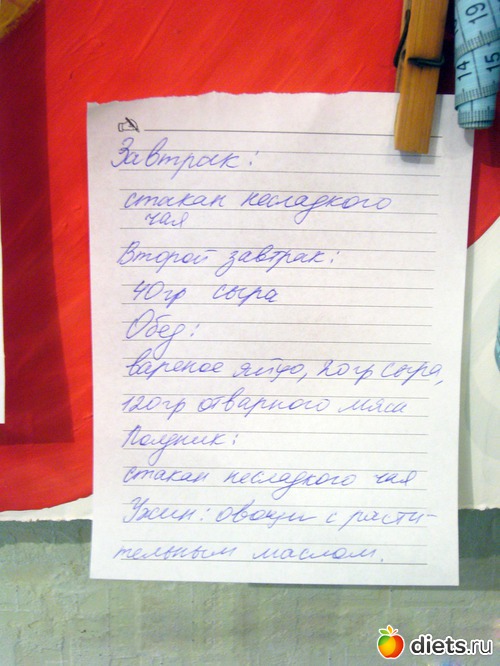 19
14
15
Завтрак:
стакан несладкого
чая
Второй завтрак:
40гр сыра
Обед:
вареное яйцо, 20гр сыра,
120гр отварного мяса
Полдник:
стакан несладкого чая
Ужин: овощи с расти-
тельным маслом.
diets.ru